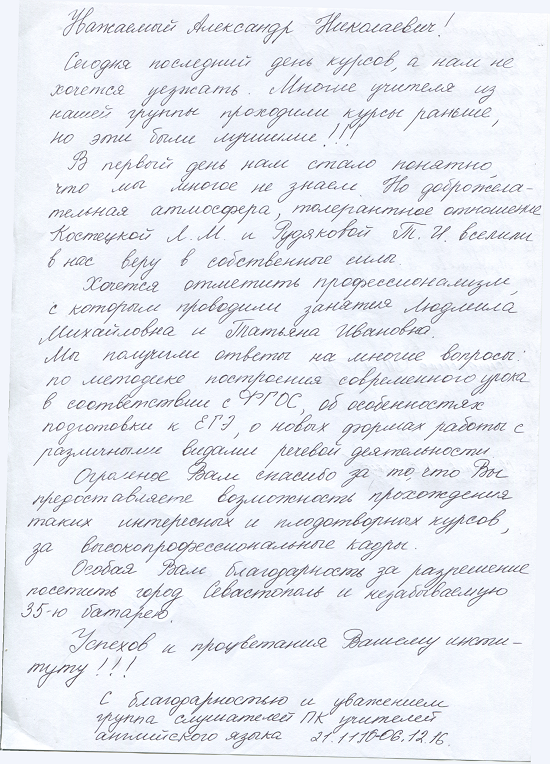 Уважаемый Александр Николаевич!
Сегодня последний день курсов, а нам не
хочется уезжать. Многие учителя из
нашей группы проходили курсы раньше,
но эти были лучшими!!!
В первый день нам стало понятно,
что мы многое не знаем. Но доброжела-
тельная атмосфера, толерантное отношение
Костецкой Л.М. и Рудяковой Т.И. вселили
в нас веру в собственные силы.
Хочется отметить профессионализм,
с которым проводили занятия Людмила
Михайловна и Татьяна Ивановна.
Мы получили ответы на многие вопросы:
по методике построения современного урока
в соответствии с ФГОС, об особенностях
подготовки к ЕГЭ, о новых формах работы с
различными видами речевой деятельности.
Огромное Вам спасибо за то, что Вы
предоставляете возможность прохождения
таких интересных и плодотворных курсов,
за высокопрофессиональные кадры.
Особая Вам благодарность за разрешение
посетить город Севастополь и незабываемую
35-ю батарею.
Успехов и процветания Вашему инсти-
туту!!!
С благодарностью и уважением
группа слушателей ПК учителей
английского языка 21.1116-06.12.16.